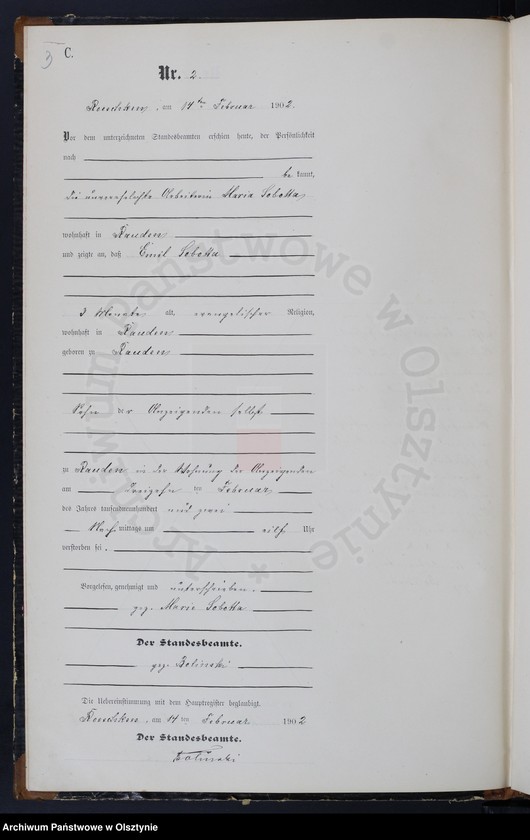 3
C.
Nr. 2.
am 14ten Februar 1902.
Vor dem unterzeichneten Standesbeamten erschien heute, der Persönlichkeit
nach
be kannt,
die unverehelichte Arbeiterin Maria Sobotta
wohnhaft in Rauden
und zeigte an, daß Emil Sobotta
3 Monate alt, evangelischer Religion,
wohnhaft in Rauden
geboren zu Rauden
Sohn der Anzeigenden selbst
zu Rauden in der Wohnung der Anzeigenden
am dreizehn ten Februar
des Jahres tausendneunhundert und zwei
Nach mittags um eilf Uhr
verstorben sei.
Vorgelesen, genehmigt und unterschrieben.
gez. Marie Sobotta
Der Standesbeamte.
gez. Bolinski
Die Uebereinstimmung mit dem Hauptregister beglaubigt.
am 14 ten Februar 1902
Der Standesbeamte.
Bolinski
Archiwum Państwowe w Olsztynie *
Archiwum Państwowe w Olsztynie